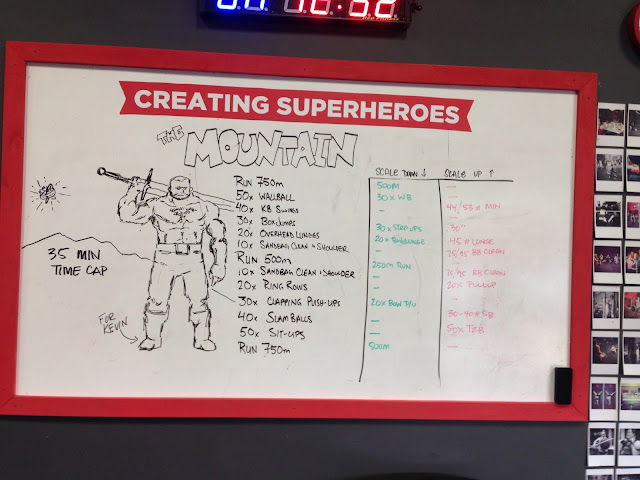 CREATING SUPERHEROES
THE MOUNTAIN
SCALE DOWN ↓ SCALE UP ↑
RUN 750m 500m —
50x WALLBALL 30x WB —
40x KB SWINGS — 44/53# MIN
30x BOX JUMPS 30x STEP UPS 30"
20x OVERHEAD LUNGES 20x LUNGE 45# LUNGE
10x SANDBAG CLEAN + SHOULDER — 75/95 BB CLEAN
RUN 500m 250m RUN —
10x SANDBAG CLEAN + SHOULDER — 75/95 BB CLEAN
20x RING ROWS — 20x PULLUP
30x CLAPPING PUSH-UPS 20x P/U —
40x SLAM BALLS — 30-40# SB
50x SIT-UPS — 50x T2B
RUN 750m 500m —
35 MIN
TIME CAP
FOR
KEVIN